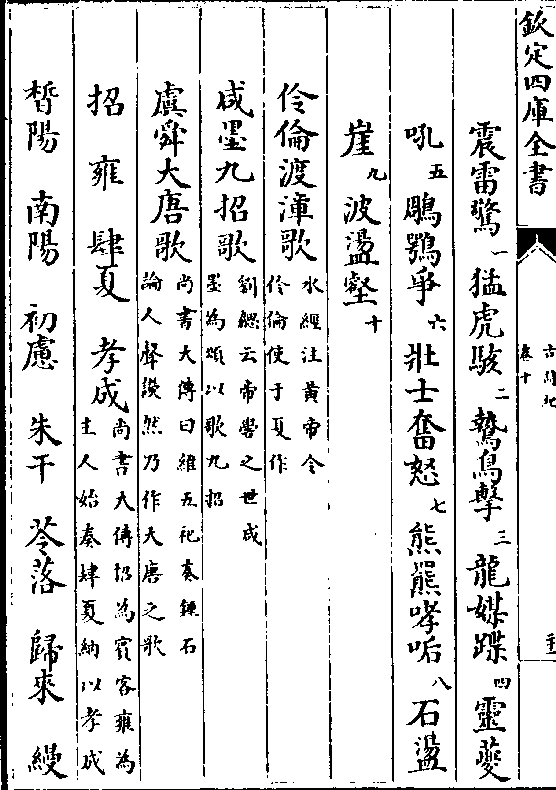 欽定四庫全書
古詩紀
卷十
震雷驚一猛虎駭二鷙鳥擊三龍媒蹀四靈夔
吼五鵰鶚爭六壯士奮怒七熊羆哮吼八石盪
崖九波盪壑十
伶倫渡漳歌水經注黄帝令
伶倫使于夏作
咸墨九招歌劉勰云帝嚳之世咸
墨為頌以歌九招
虞舜大唐歌尚書大傳曰維五祀奏鍾石
論人聲讙然乃作大唐之歌
招 雍 肆夏 孝成尚書大傳招為賓客雍為
主人始奏肆夏納以孝成
晳陽 南陽 初慮 朱干 苓落 歸來 縵